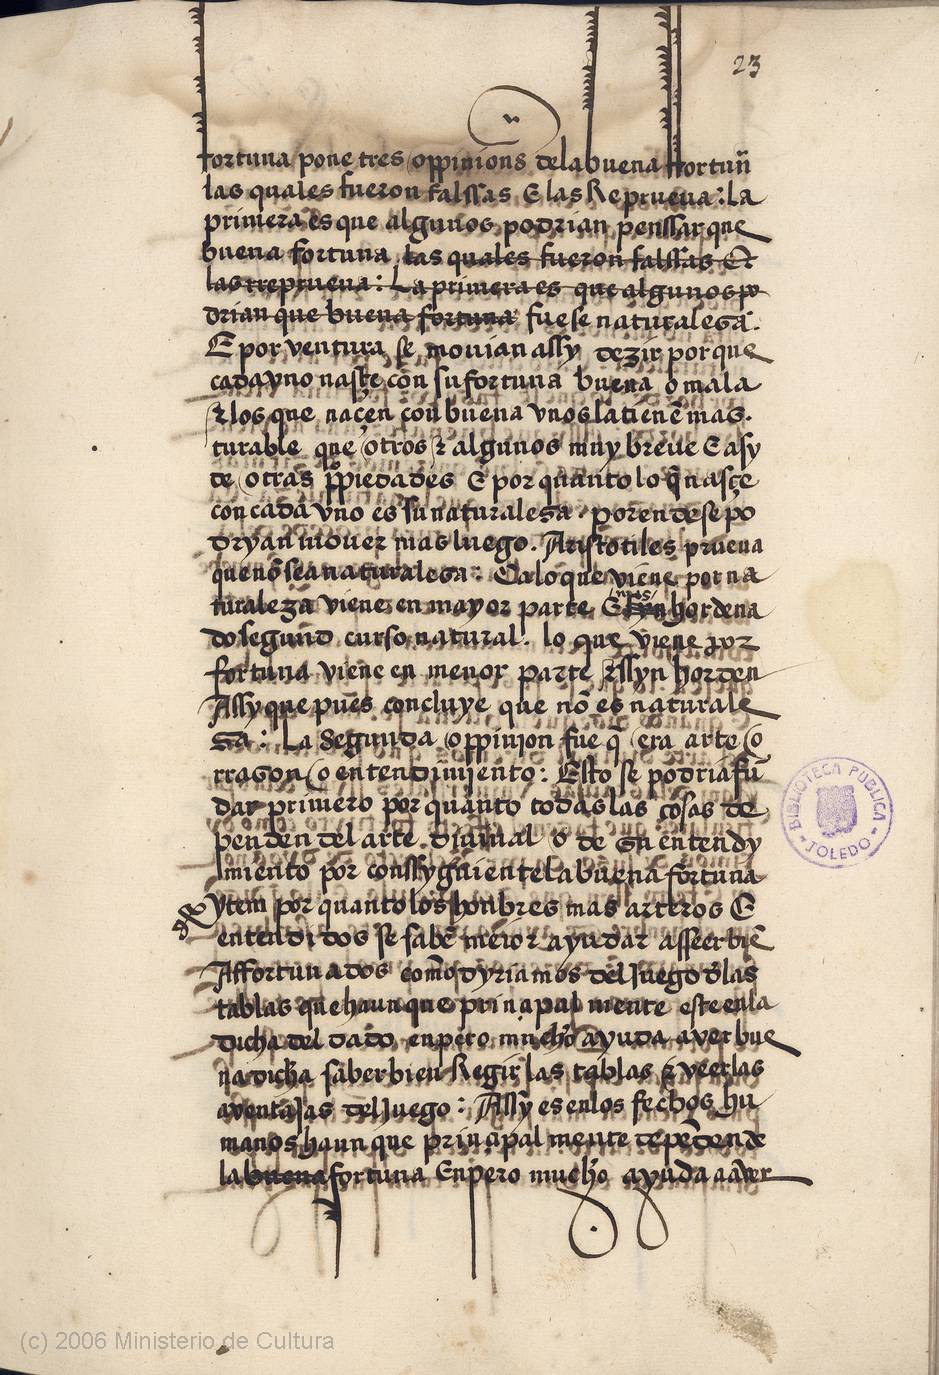 23
fortuna pone tres oppinions dela buena ffortuñ
las quales fueron falssas E las Reprueua : la
primera es que algunos podrian penssar que
buena fortuna las quales fueron falssas Et
las rreprueua : La primera es que algunos po
drian que buena fortuna fuese naturalesa .
E por ventura se mouian assy dezir por que
cada vno nasçe con su fortuna buena o mala
z los que naçen con buena vnos la tienē mas .
turable que otros z algunos muy breue E asy
de otras ꝓpiedades E por quanto lo q̄ nasçe
con cada vno es su naturalesa . por ende se po
dryan mouer mas luego . Aristotiles prueua
que nō sea naturalesa : Ca lo que viene por na
turaleza viene en mayor parte E syn hordena
do segund curso natural . lo que viene por
fortuna viene en menor parte z ssyn horden
Assy que pues concluye que nō es naturale
sa : La segunda oppinion fue q̄ era arte o
rrason o entendimjento : Esto se podria fū
dar primero por quanto todas las cosas de
penden del arte . diuinal o de su entendy
miento por conssyguiente la buena fortuna
ytem por quanto los honbres mas arteros E
entendidos se sabē meior ayudar asseer biē
Affortunados como dyriamos del Juego d̄las
tablas que haun que prinçipal mente este en la
dicha del dado enpero mucho ayuda aver bue
na dicha saber bien Regir las tablas z veer las
aventaJas del Juego : Assy es en los fechos hu
manos haun que prinçipal mente depēden de
la buena fortuna Enpero mucho ayuda a aver
BIBLIOTECA PUBLICA
TOLEDO
(c) 2006 Ministerio de Cultura